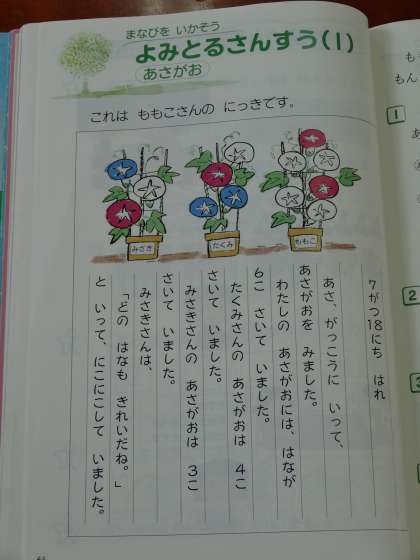 まなびを いかそう
よみとるさんすう(1)
あさがお
これは ももこさんの にっきです。
みさき
たくみ
ももこ
7がつ18にち はれ
あさ、がっこうに いって、
あさがおを みました。
わたしの あさがおには、はなが
6こ さいて いました。
たくみさんの あさがおは 4こ
さいて いました。
みさきさんの あさがおは 3こ
さいて いました。
みさきさんは、
「どの はなも きれいだね。」
と いって、にこにこして いました。
も
もん
1
あ
2